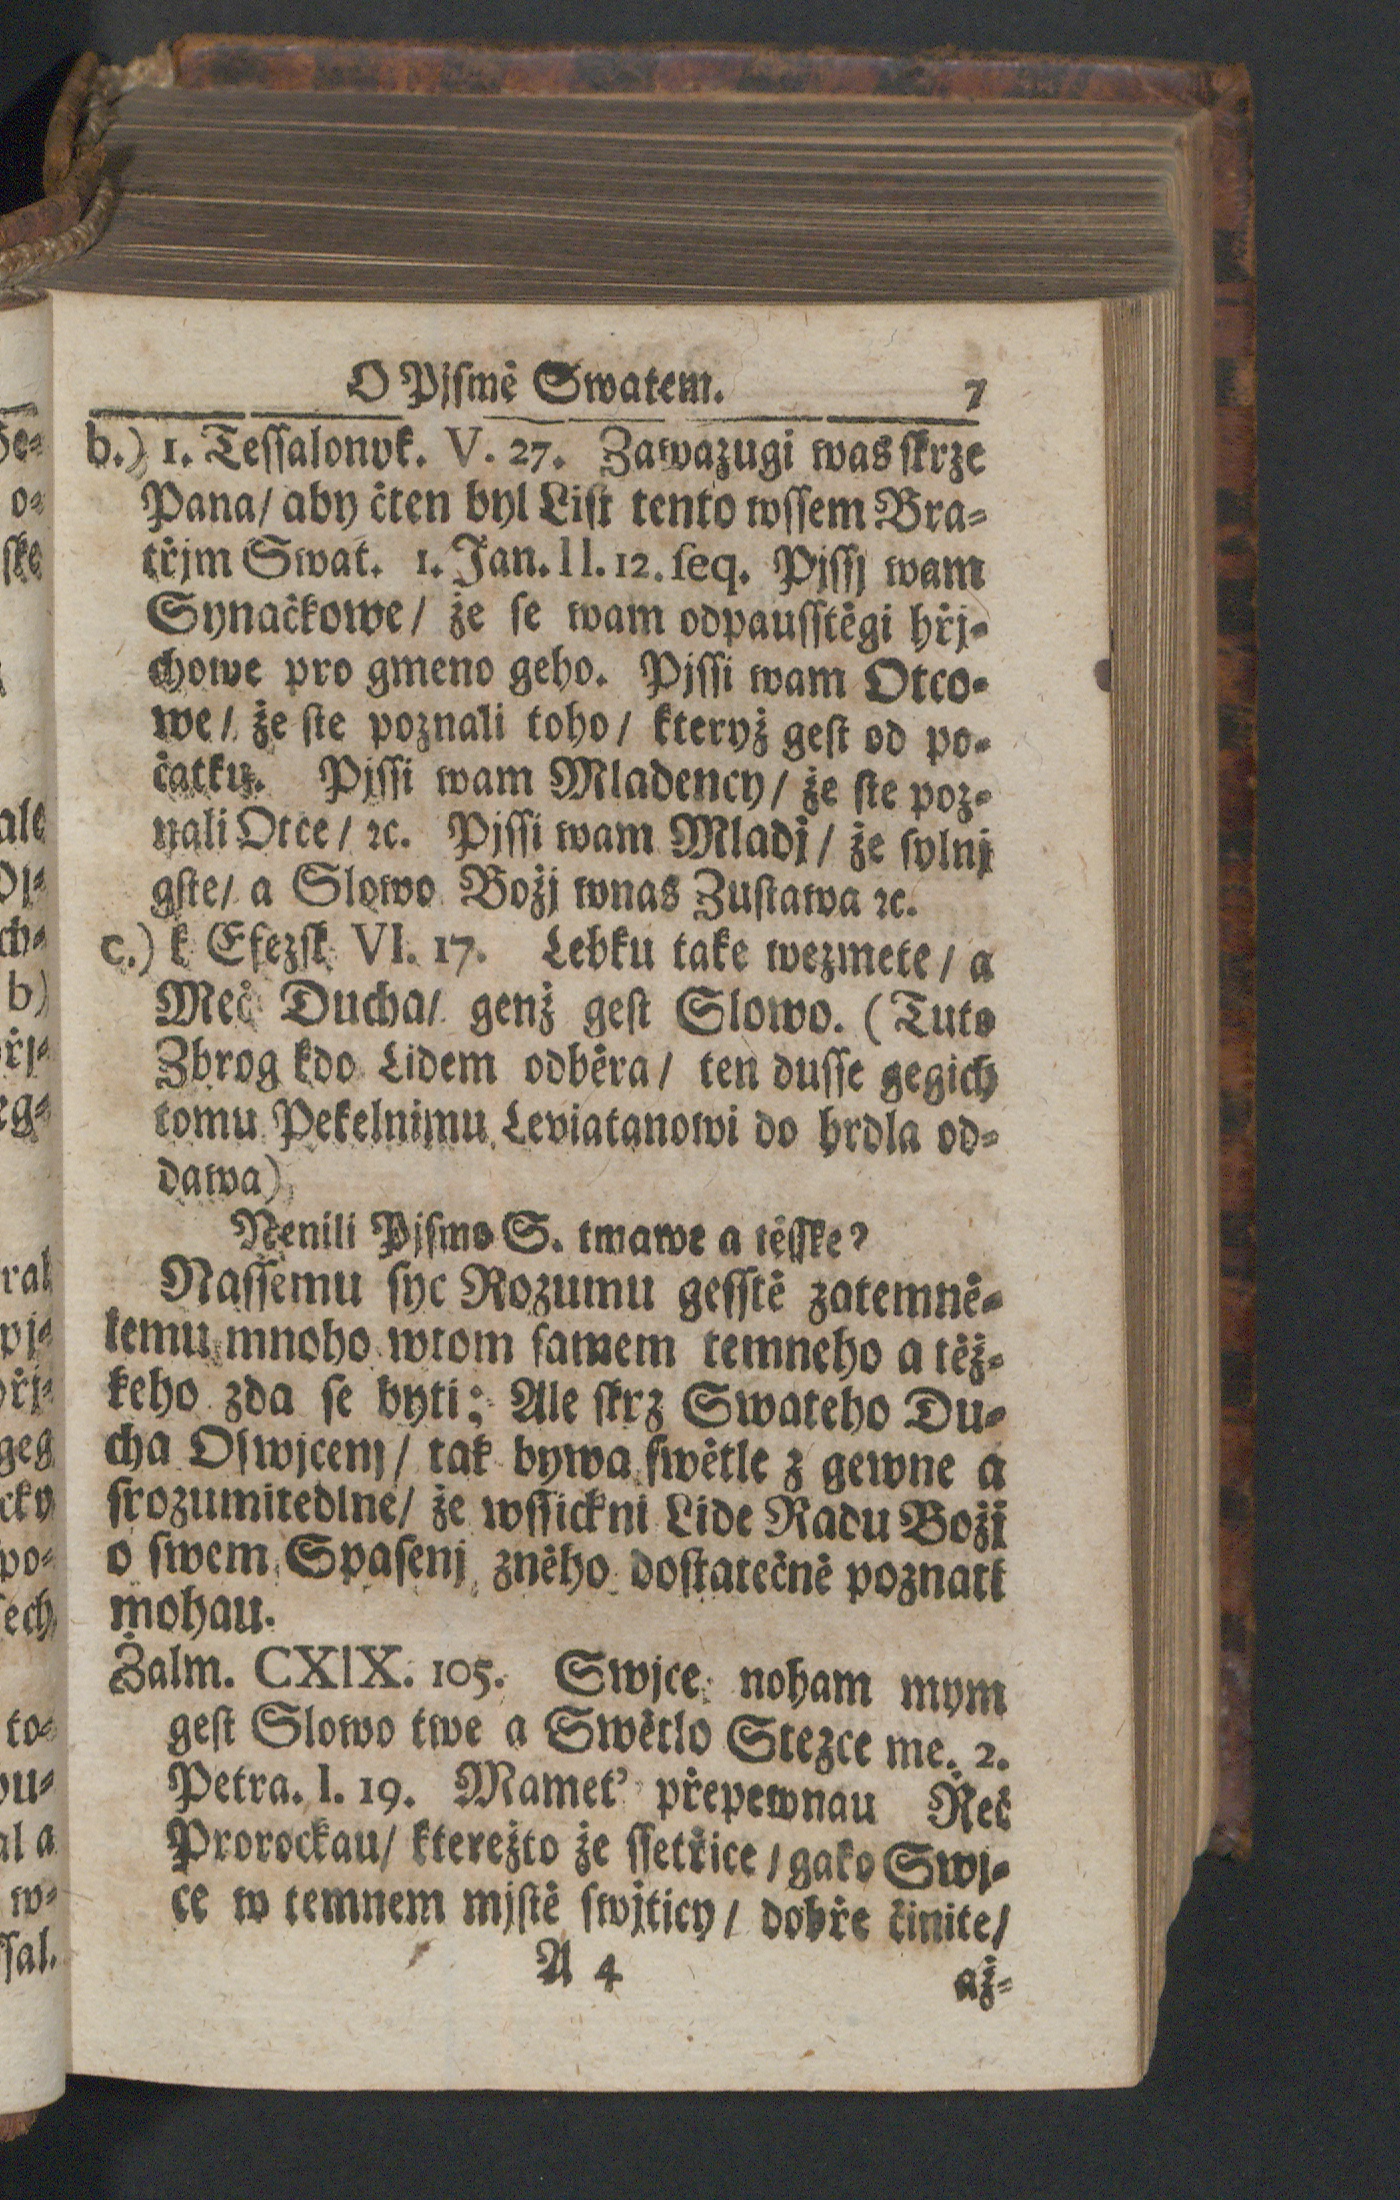 O Pjsmě Swatem. 7
b.) 1. Tessalonyk. V. 27. Zawazugi was skrze
Pana/ aby čten byl List tento wssem Bra-
třjm Swat. 1. Jan. II. 12. seq. Pjssj wam
Synačkowe/ že se wam odpausstěgi hřj-
chowe pro gmeno geho. Pjssi wam Otco-
we/ že ste poznali toho/ kteryž gest od po-
čatku. Pjssi wam Mladency/ že ste poz-
nali Otce/ ꝛc. Pjssi wam Mladj/ že sylnj
gste/ a Slowo Božj wnas Zustawa ꝛc.
c.) k Efezsk VI. 17. Lebku take wezmete/ a
Meč Ducha/ genž gest Slowo. (Tuto
Zbrog kdo Lidem odběra/ ten dusse gegich
tomu Pekelnimu Leviatanowi do hrdla od-
dawa)
Nenili Pjsmo S. tmawe a těsske?
Nassemu syc Rozumu gesstě zatemně-
lemu mnoho wtom samem temneho a těž-
keho zda se byti; Ale skrz Swateho Du-
cha Oswjcenj/ tak bywa swětle z gewne a
srozumitedlne/ že wssickni Lide Radu Boži
o swem Spasenj zněho dostatečně poznati
mohau.
Žalm. CXIX. 105. Swjce noham mym
gest Slowo twe a Swětlo Stezce me. 2.
Petra. I. 19. Mamet' přepewnau Řeč
Prorockau/ kterežto že ssetřice/ gako Swj-
ce w temnem mjstě swjticy/ dobře činite/
A 4 až-